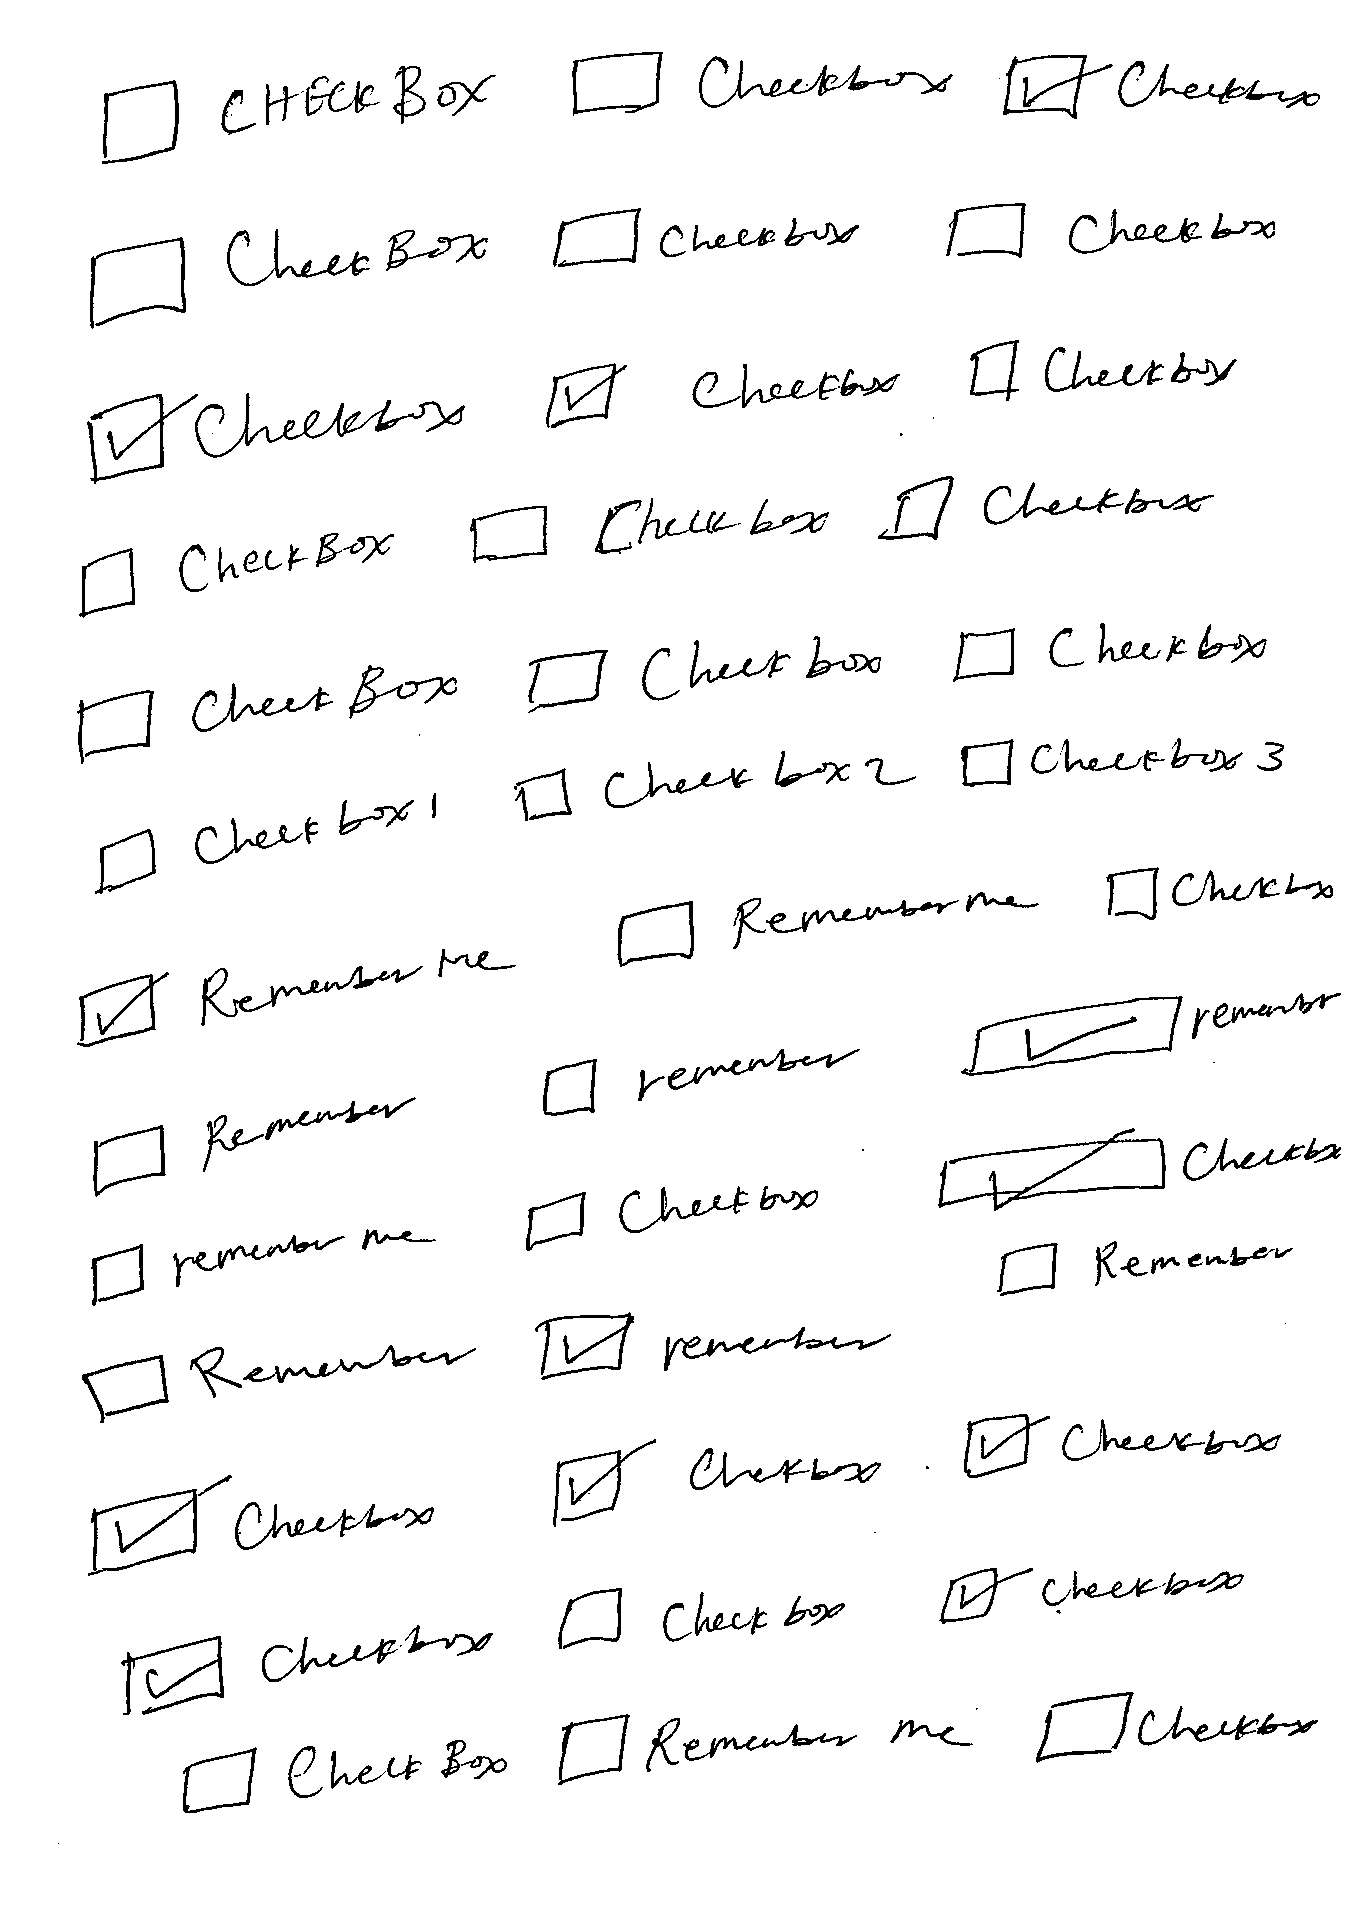 CHECKBOX Checkbox Checkbox
CheckBox Checkbox Checkbox
Checkbox Checkbox Checkbox
CheckBox Checkbox Checkbox
Check Box Check box Checkbox
Check box 1 Check box 2 Checkbox 3
Remember Me Remember me Checkbox
Remember remember remembr
remember me Checkbox Checkbx
Remember remember Remember
Checkbox Checkbox Checkbox
Checkbox Check box Checkbox
Check Box Remember me Checkbox